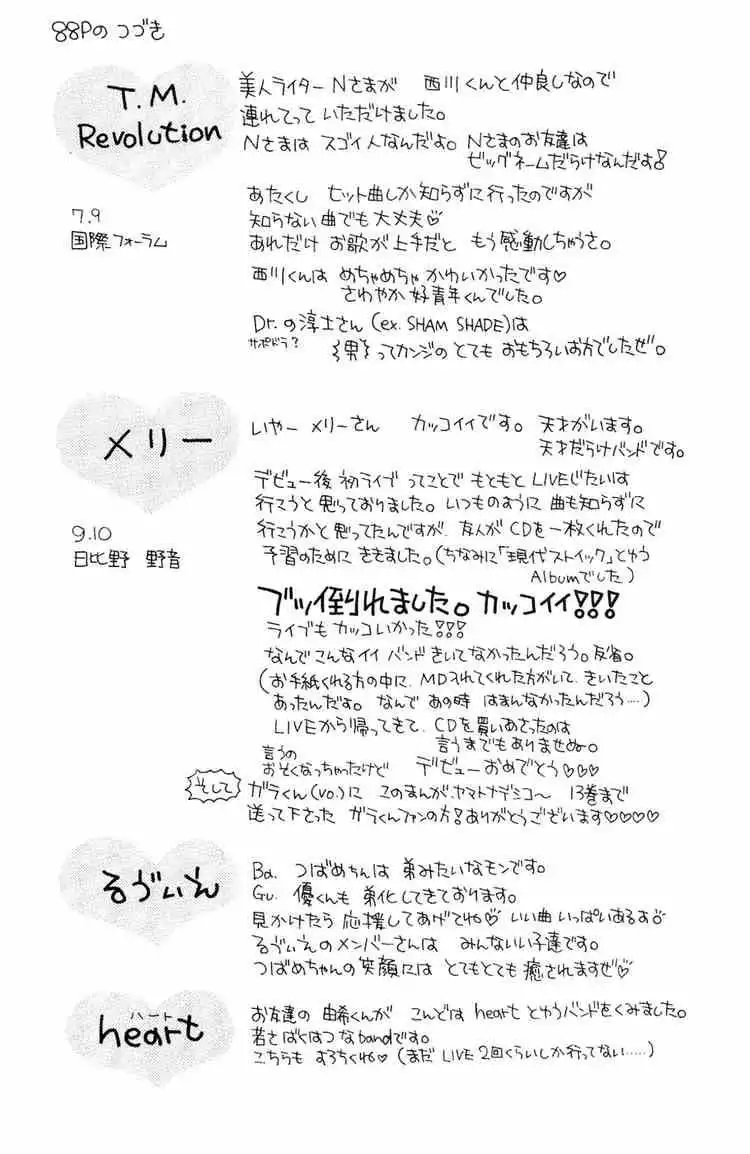 88Pの つづき
T.M.
Revolution
7.9
国際フォーラム
美人ライター Nさまが 西川くんと仲良しなので
連れてって いただけました。
Nさまは スゴイ人なんだよ。Nさまのお友達は
ビッグネームだらけなんだよ!
あたくし ヒット曲しか知らずに行ったのですが
知らない曲でも大丈夫♡
あれだけ お歌が上手だと もう感動しちゃうさ。
西川くんは めちゃめちゃ かわいかったです♡
さわやか好青年くんでした。
Dr.の淳士さん (ex. SHAM SHADE)は
サポドラ?
男 ってカンジの とても おもちろいお方でしたぜ。
メリー
9.10
日比野 野音
いやー メリーさん カッコイイです。天才がいます。
天才だらけバンドです。
デビュー後 初ライブ ってことで もともと LIVEじたいは
行こうと思っておりました。いつものように 曲も知らずに
行こうかと思ってたんですが、友人が CDを一枚くれたので
予習のために ききました。(ちなみに「現代ストイック」とゆう
Albumでした)
ブッ倒れました。カッコイイ!!!
ライブも カッコいかった!!!
なんで こんな イイ バンド きいてなかったんだろう。反省。
(お手紙くれる方の中に、MD入れてくれた方がいて、きいたこと
あったんだよ。なんで あの時 はまんなかったんだろう....)
LIVEから帰ってきて、CDを買いあさったのは
言うまでもありませぬ。
言うの
おそくなっちゃったけど デビューおめでとう♡♡♡
そして
ガラくん(vo.)に このまんが、ヤマトナデシコ〜 13巻まで
送って下さった ガラくんファンの方!ありがとうございます♡♡♡♡
るゔぃえ
Ba. つばめちんは 弟みたいなモンです。
Gu. 優くんも 弟化してきております。
見かけたら 応援してあげてね♡ いい曲 いっぱいあるよ♡
るゔぃえのメンバーさんは みんないい子達です。
つばめちゃんの笑顔には とてもとても癒されますぜ♡
ハート
heart
お友達の 由希くんが こんどは heart とゆうバンドをくみました。
若さばくはつなbandです。
こちらも よろちくね♡ (まだ LIVE 2回くらいしか行ってない.....)